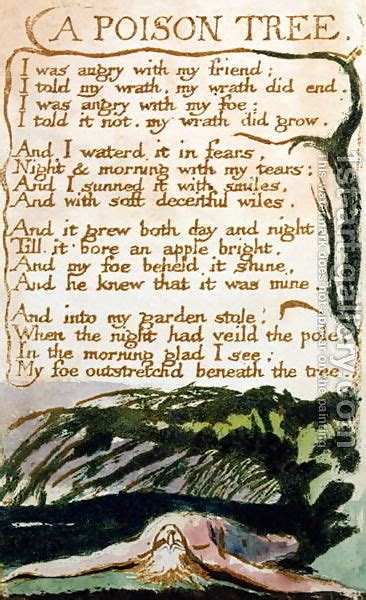 A POISON TREE.
I was angry with my friend;
I told my wrath, my wrath did end.
I was angry with my foe:
I told it not, my wrath did grow.
And I waterd it in fears,
Night & morning with my tears:
And I sunned it with smiles,
And with soft deceitful wiles.
And it grew both day and night.
Till it bore an apple bright.
And my foe beheld it shine,
And he knew that it was mine
And into my garden stole;
When the night had veild the pole;
In the morning glad I see;
My foe outstretchd beneath the tree
1st-art-gallery.com
This watermark does not appear on the painting